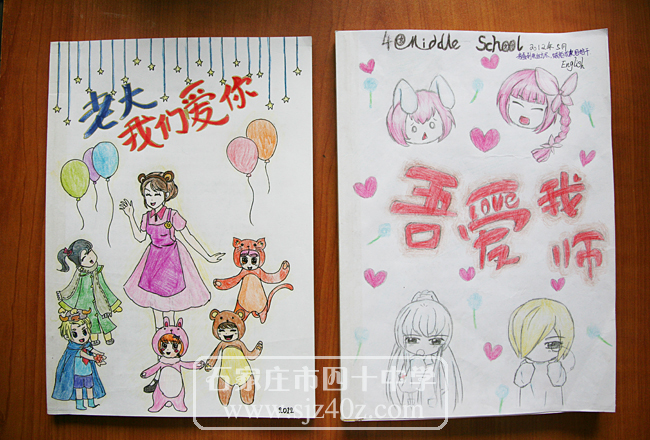 老大
我们爱你
2012
4⊙Middle School
2012年5月
English
吾爱我师
Love
石家庄市四十中学
www.sjz40z.com